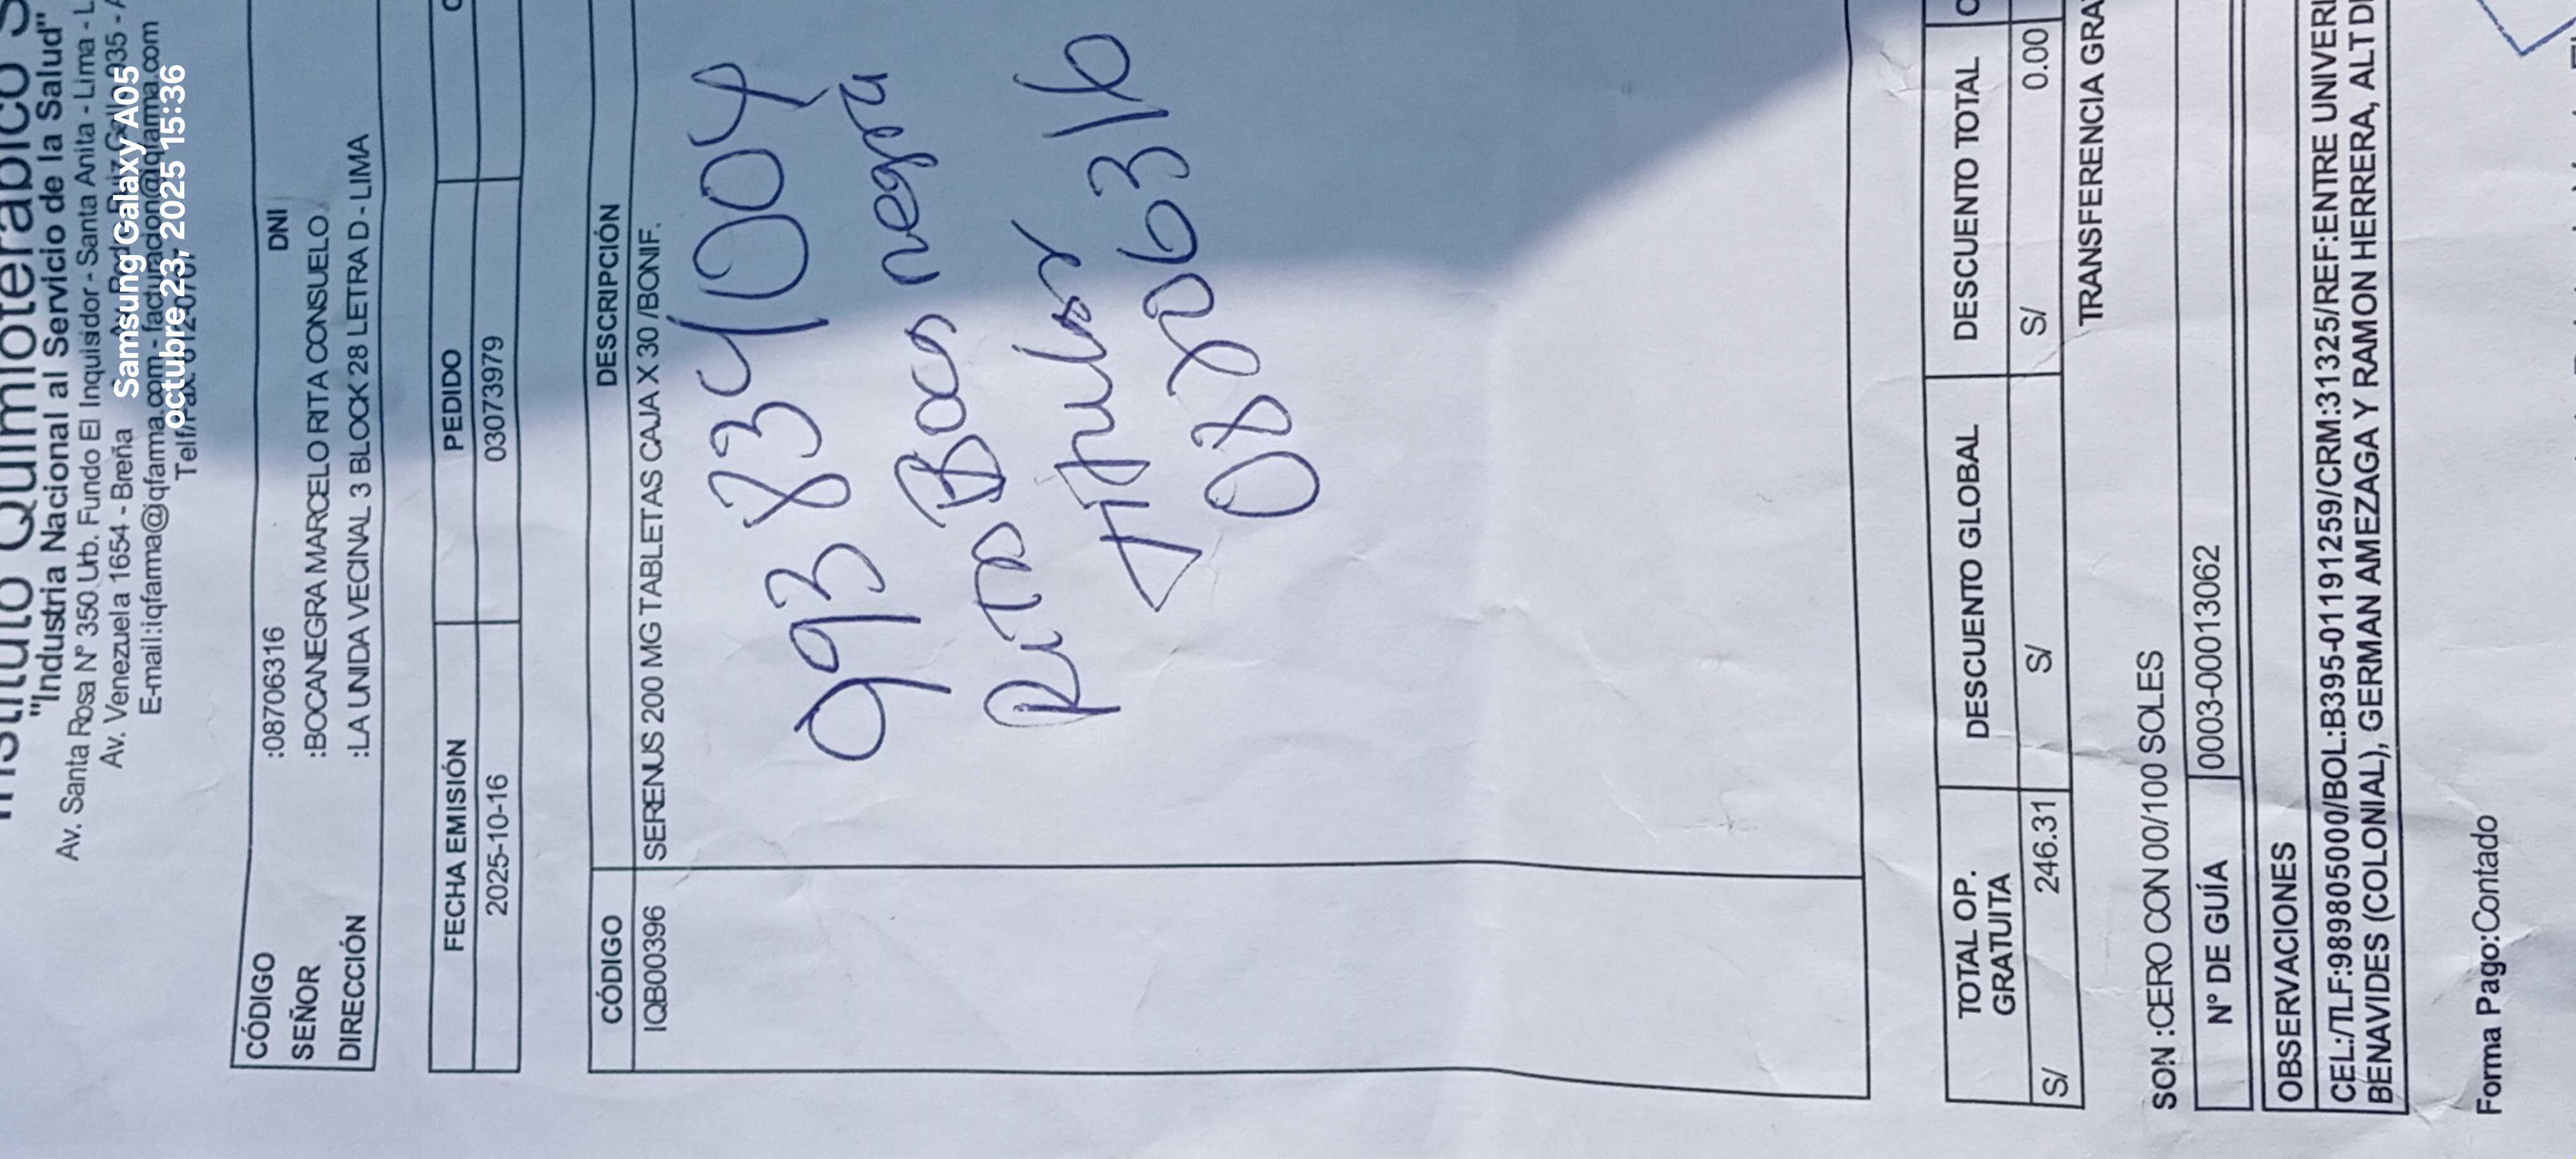 Instituto Quimioterápico S
"Industria Nacional al Servicio de la Salud"
Av. Santa Rosa N° 350 Urb. Fundo El Inquisidor - Santa Anita - Lima - L
Av. Venezuela 1654 - Breña
E-mail:iqfarma@qfarma.com - facturacion@iqfarma.com
Samsung Galaxy A05
octubre 23, 2025 15:36
CÓDIGO :08706316 DNI
SEÑOR :BOCANEGRA MARCELO RITA CONSUELO
DIRECCIÓN :LA UNIDA VECINAL 3 BLOCK 28 LETRA D - LIMA
FECHA EMISIÓN PEDIDO
2025-10-16 03073979
CÓDIGO DESCRIPCIÓN
IQB00396 SERENUS 200 MG TABLETAS CAJA X 30 /BONIF.
993 834004
Rita Bocanegra
Titular
08706316
TOTAL OP. GRATUITA DESCUENTO GLOBAL DESCUENTO TOTAL
S/ 246.31 S/ S/ 0.00
TRANSFERENCIA GRA
SON :CERO CON 00/100 SOLES
N° DE GUÍA 0003-00013062
OBSERVACIONES
CEL:/TLF:989805000/BOL:B395-01191259/CRM:31325/REF:ENTRE UNIVERI
BENAVIDES (COLONIAL), GERMAN AMEZAGA Y RAMON HERRERA, ALT DE
Forma Pago:Contado